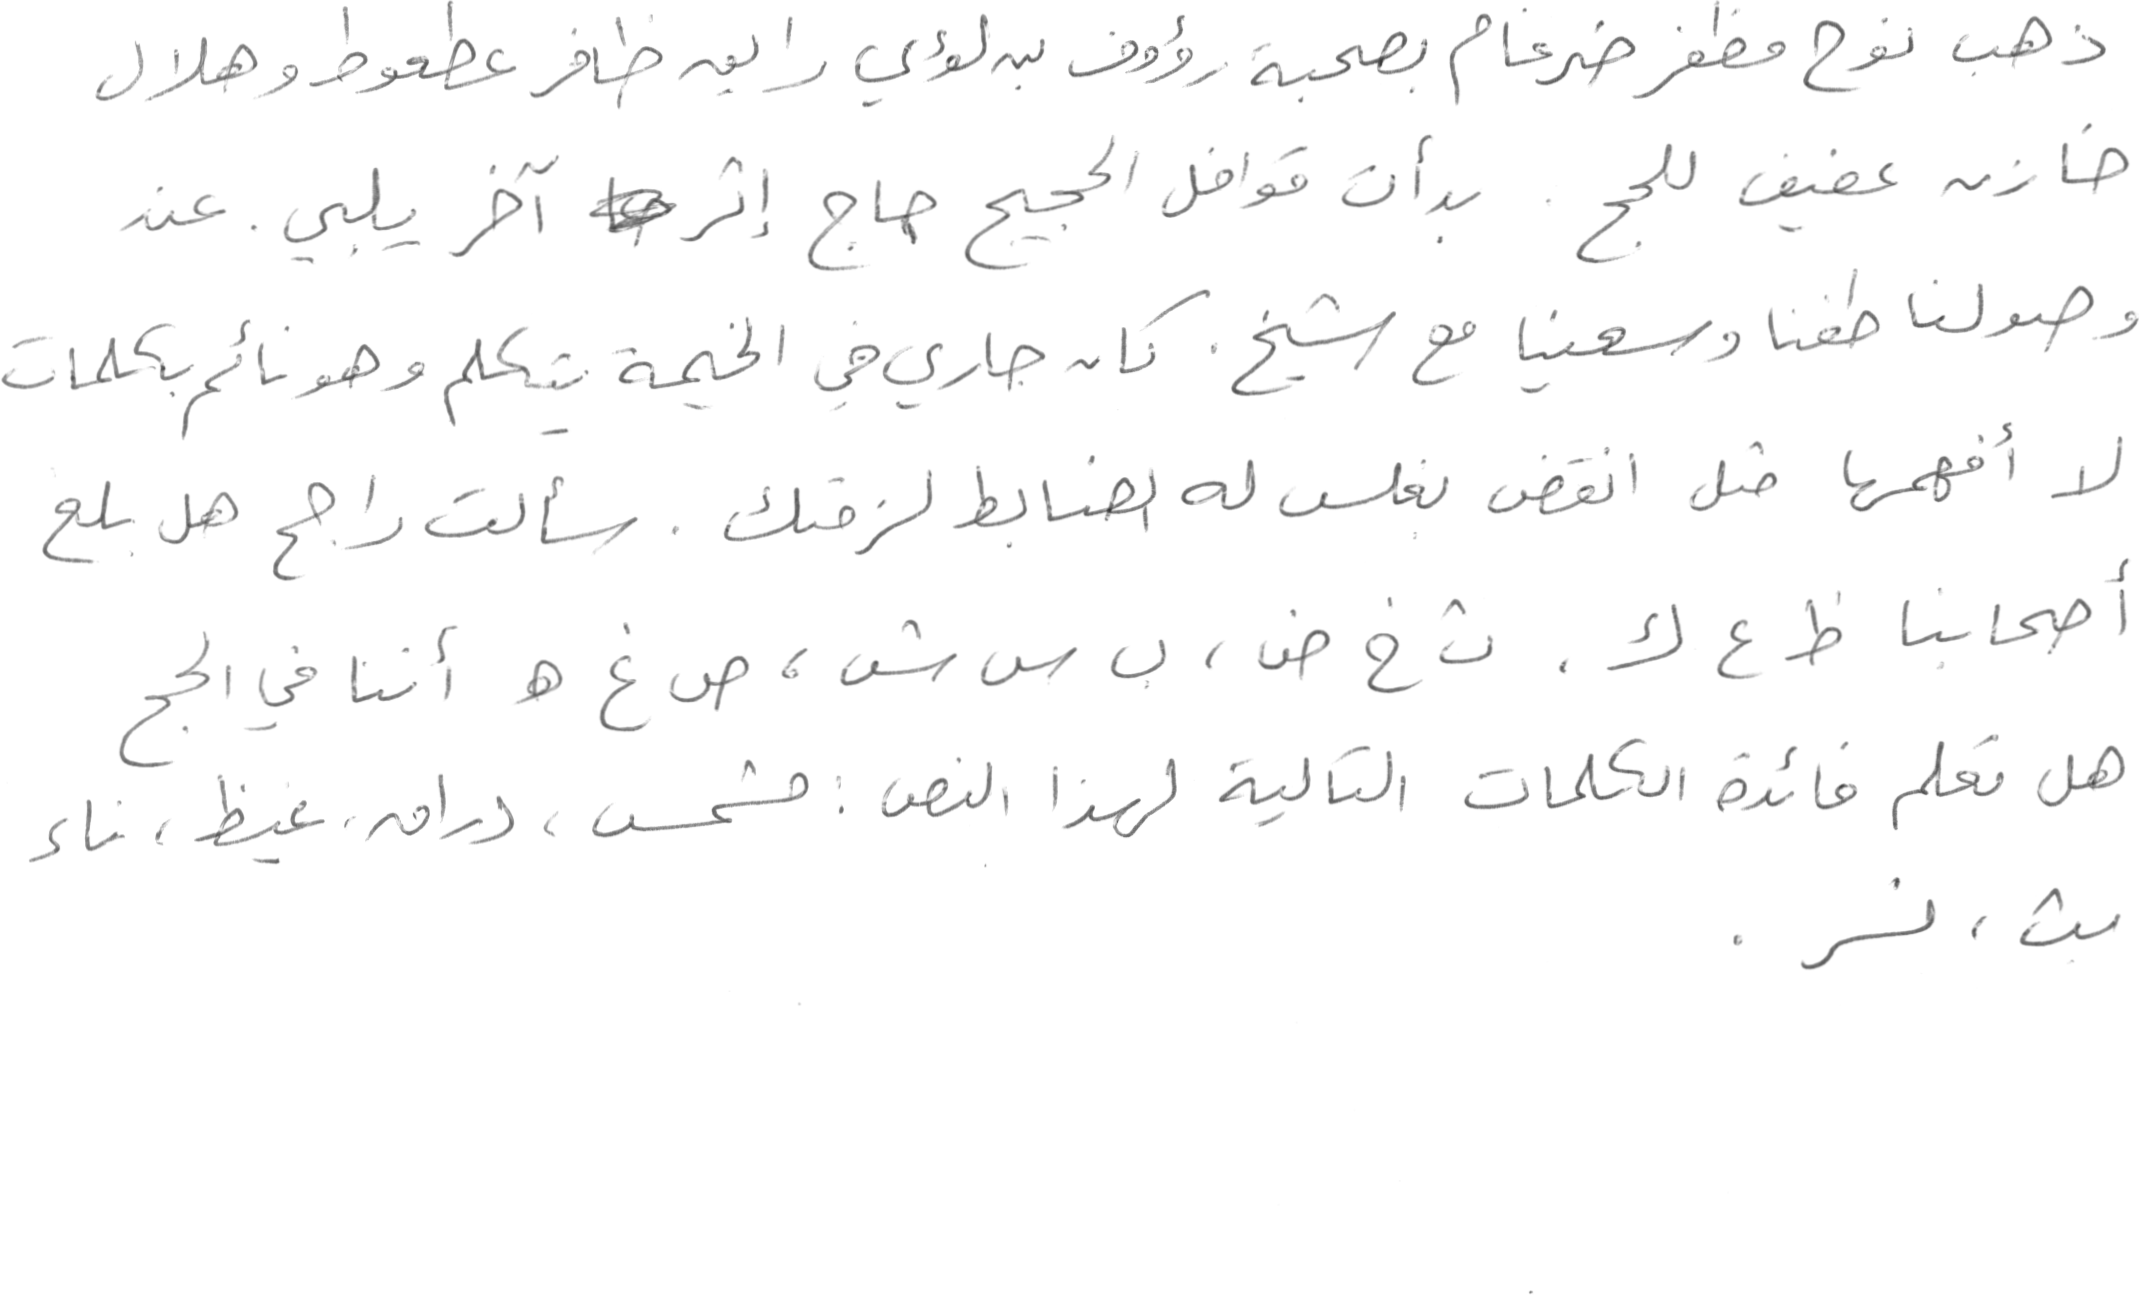 ذهب نوح مظفر ضرغام بصحبة رؤوف بن لؤي رايق ظافر عطعوط وهلال
خازن عفيف للحج . بدأت قوافل الحجيج حاج إثر آخر يلبي . عند
وصولنا طفنا وسعينا مع الشيخ . كان جاري في الخيمة يتكلم وهو نائم بكلمات
لا أفهمها مثل انقض بغلس له الضابط لزقتك . سألت راجح هل بلغ
أصحابنا ظ ع ك . ث خ ض ، ب س ش ، ص غ ه أننا في الحج
هل تعلم فائدة الكلمات التالية لهذا النص : مشمس ، دراق ، غيظ ، ناء
بث ، نسر .